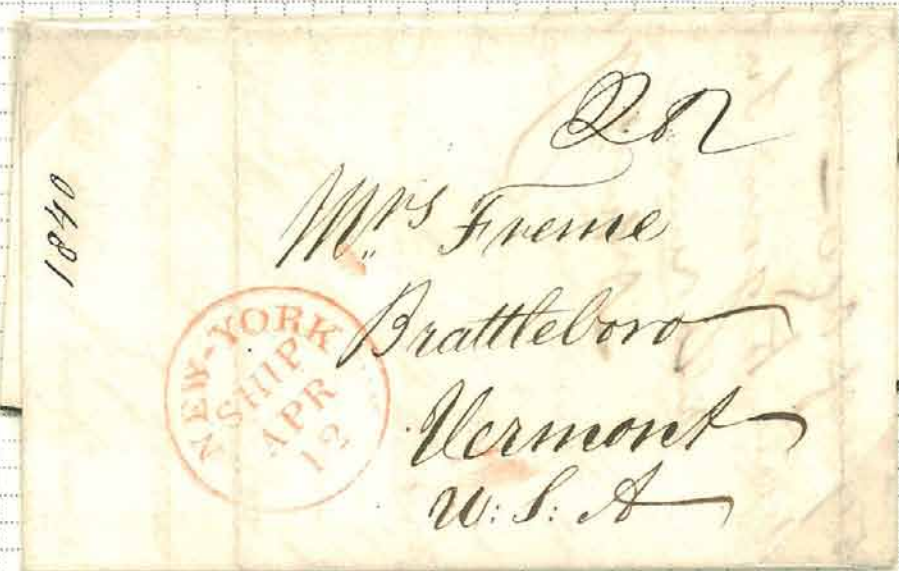 1840
Mrs Freme
Brattleboro
Vermont
U: S: A
NEW-YORK
SHIP
APR
12